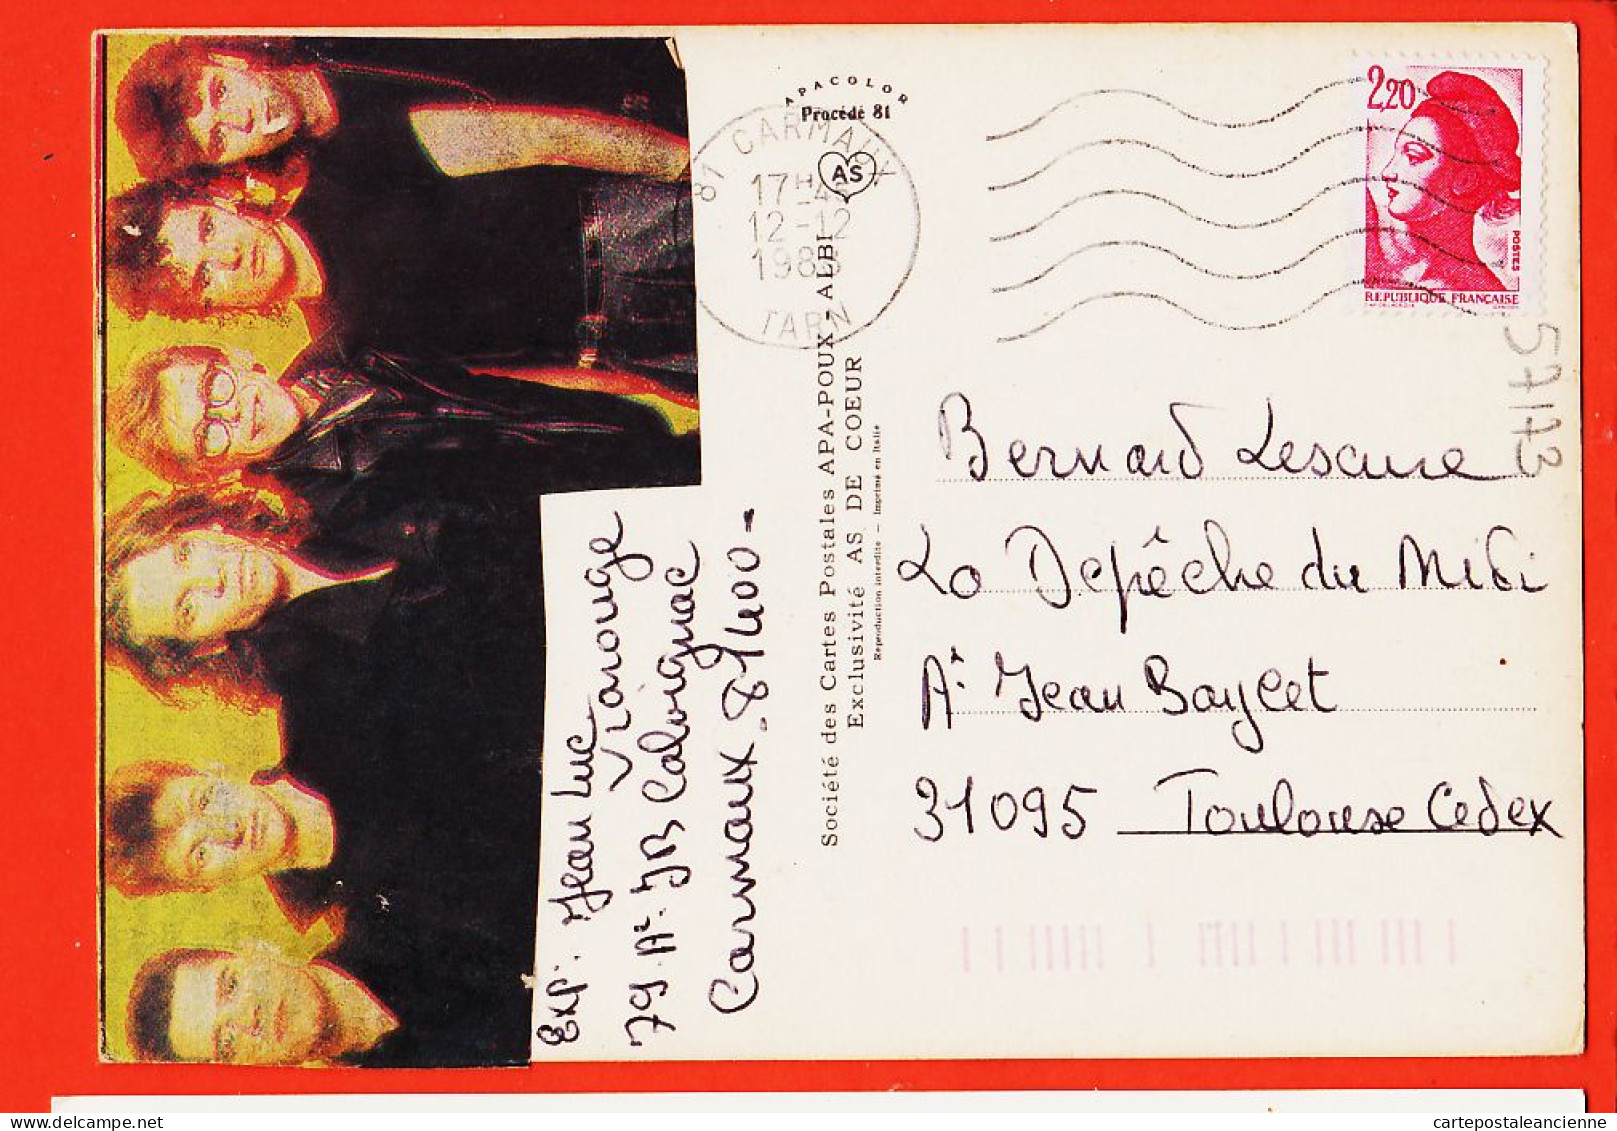 APACOLOR
Procédé 81
AS
81 CARMAUX
17H
12-12
TARN
2,20
POSTES
REPUBLIQUE FRANÇAISE
57173
Société des Cartes Postales APA-POUX - ALBI
Exclusivité AS DE COEUR
Reproduction interdite - Imprimé en Italie
Exp: Jean Luc
Viarouge
79 Ar JB Calvignac
Carmaux 81400-
Bernard Lescure
La Depêche du Midi
Ar Jean Baylet
31095 Toulouse Cedex
cartepostaleancienne